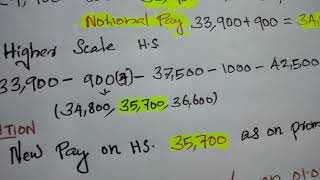 Notional Pay 33,900 + 900 = 34,
Higher Scale H.S
33,900 - 900(4) - 37,500 - 1000 - 42,500
(34,800, 35,700, 36,600)
New Pay on HS. 35,700 as on prom